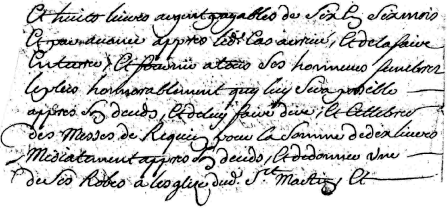 Et huict livres argent payables de six en six mois
Et par avance appres led. cas arrivé, Et de la faire
Enterrer, Et fournir a tous ses honneurs funebres
le plus honnorablement que luy sera possible
appres son deceds, Et de luy faire dire, Et Cellebrer
des Messes de Requien pour la somme de dix livres
Mediatament appres son deceds, Et de donner Une
de ses Robes a l'esglise dud. St Martin, Et